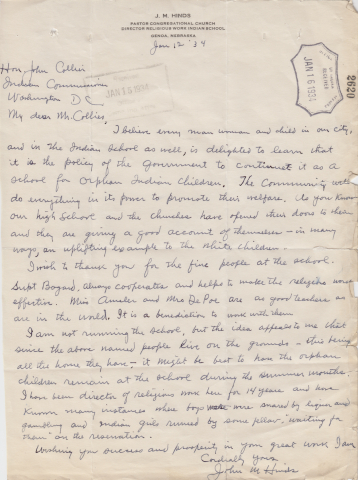 J. M. HINDS
PASTOR CONGREGATIONAL CHURCH
DIRECTOR RELIGIOUS WORK INDIAN SCHOOL
GENOA, NEBRASKA
Jan 12 '34
JAN 16 1934
2620
Hon. John Collier
Indian Commissioner
Washington D C
My dear Mr. Collier,
I believe every man woman and child in our city,
and in the Indian School as well, is delighted to learn that
it is the policy of the Government to continue it as a
school for Orphan Indian Children. The Community will
do everything in its power to promote their welfare. As you know
our high School and the churches have opened their doors to them
and they are giving a good account of themselves - in many
ways, an uplifting example to the white children.
I wish to thank you for the fine people at the school.
Supt Bogard, always cooperates and helps to make the religious work
effective. Miss and Mrs De Poe are as good teachers as
are in the world. It is a benediction to work with them
I am not running the School, but the idea appeals to me that
since the above named people live on the grounds - this being
all the home they have - it might be best to have the orphan
children remain at the school during the summer months.
I have been director of religious work here for 14 years and have
known many instances where boys were snared by liquor and
gambling and Indian Girls ruined by some fellow "waiting for
them" on the reservation.
Wishing you success and prosperity in your great work I am
Cordially yours
John M Hinds